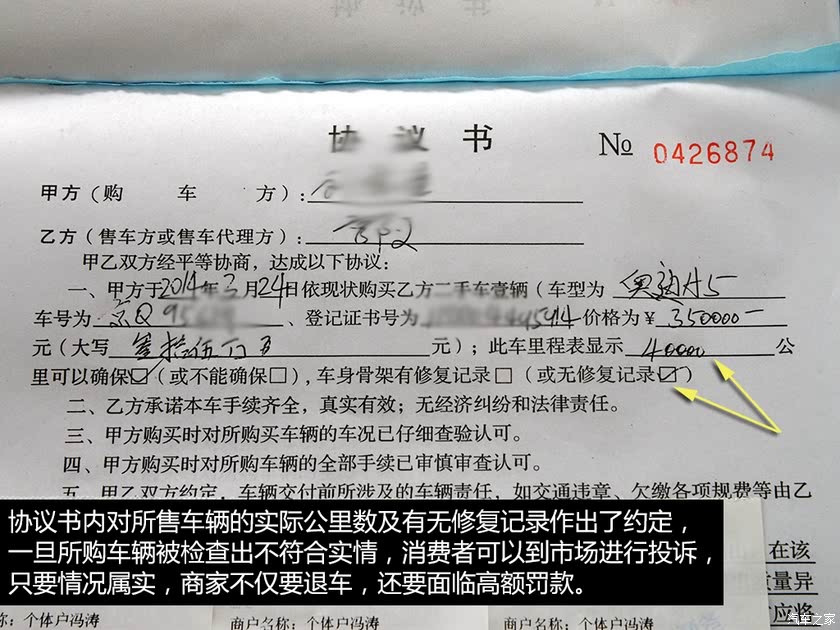 协 议 书
№ 0426874
甲方（购 车 方）：
乙方（售车方或售车代理方）：
甲乙双方经平等协商，达成以下协议：
一、甲方于2014年3月24日依现状购买乙方二手车壹辆（车型为 奥迪A5
车号为 京Q 、登记证书号为 价格为￥ 350000一
元（大写 叁拾伍万 元）；此车里程表显示 40000 公
里可以确保☑（或不能确保□），车身骨架有修复记录□（或无修复记录☑）
二、乙方承诺本车手续齐全，真实有效；无经济纠纷和法律责任。
三、甲方购买时对所购买车辆的车况已仔细查验认可。
四、甲方购买时对所购车辆的全部手续已审慎审查认可。
五、甲乙双方约定，车辆交付前所涉及的车辆责任，如交通违章、欠缴各项规费等由乙
协议书内对所售车辆的实际公里数及有无修复记录作出了约定，
一旦所购车辆被检查出不符合实情，消费者可以到市场进行投诉，
只要情况属实，商家不仅要退车，还要面临高额罚款。
在该
质量异
方应将
称：个体户冯涛 商户名称：个体户冯涛 商户名称：个体户冯涛
汽车之家